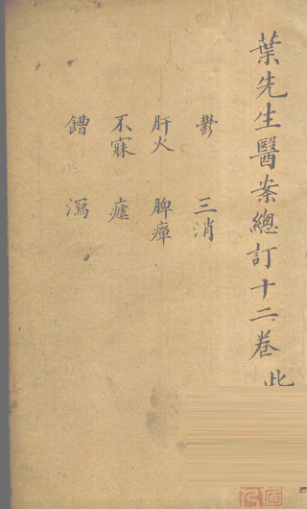 葉先生醫案總訂十二卷 此
鬱 三消
肝火 脾癉
不寐 瘧
饐 瀉